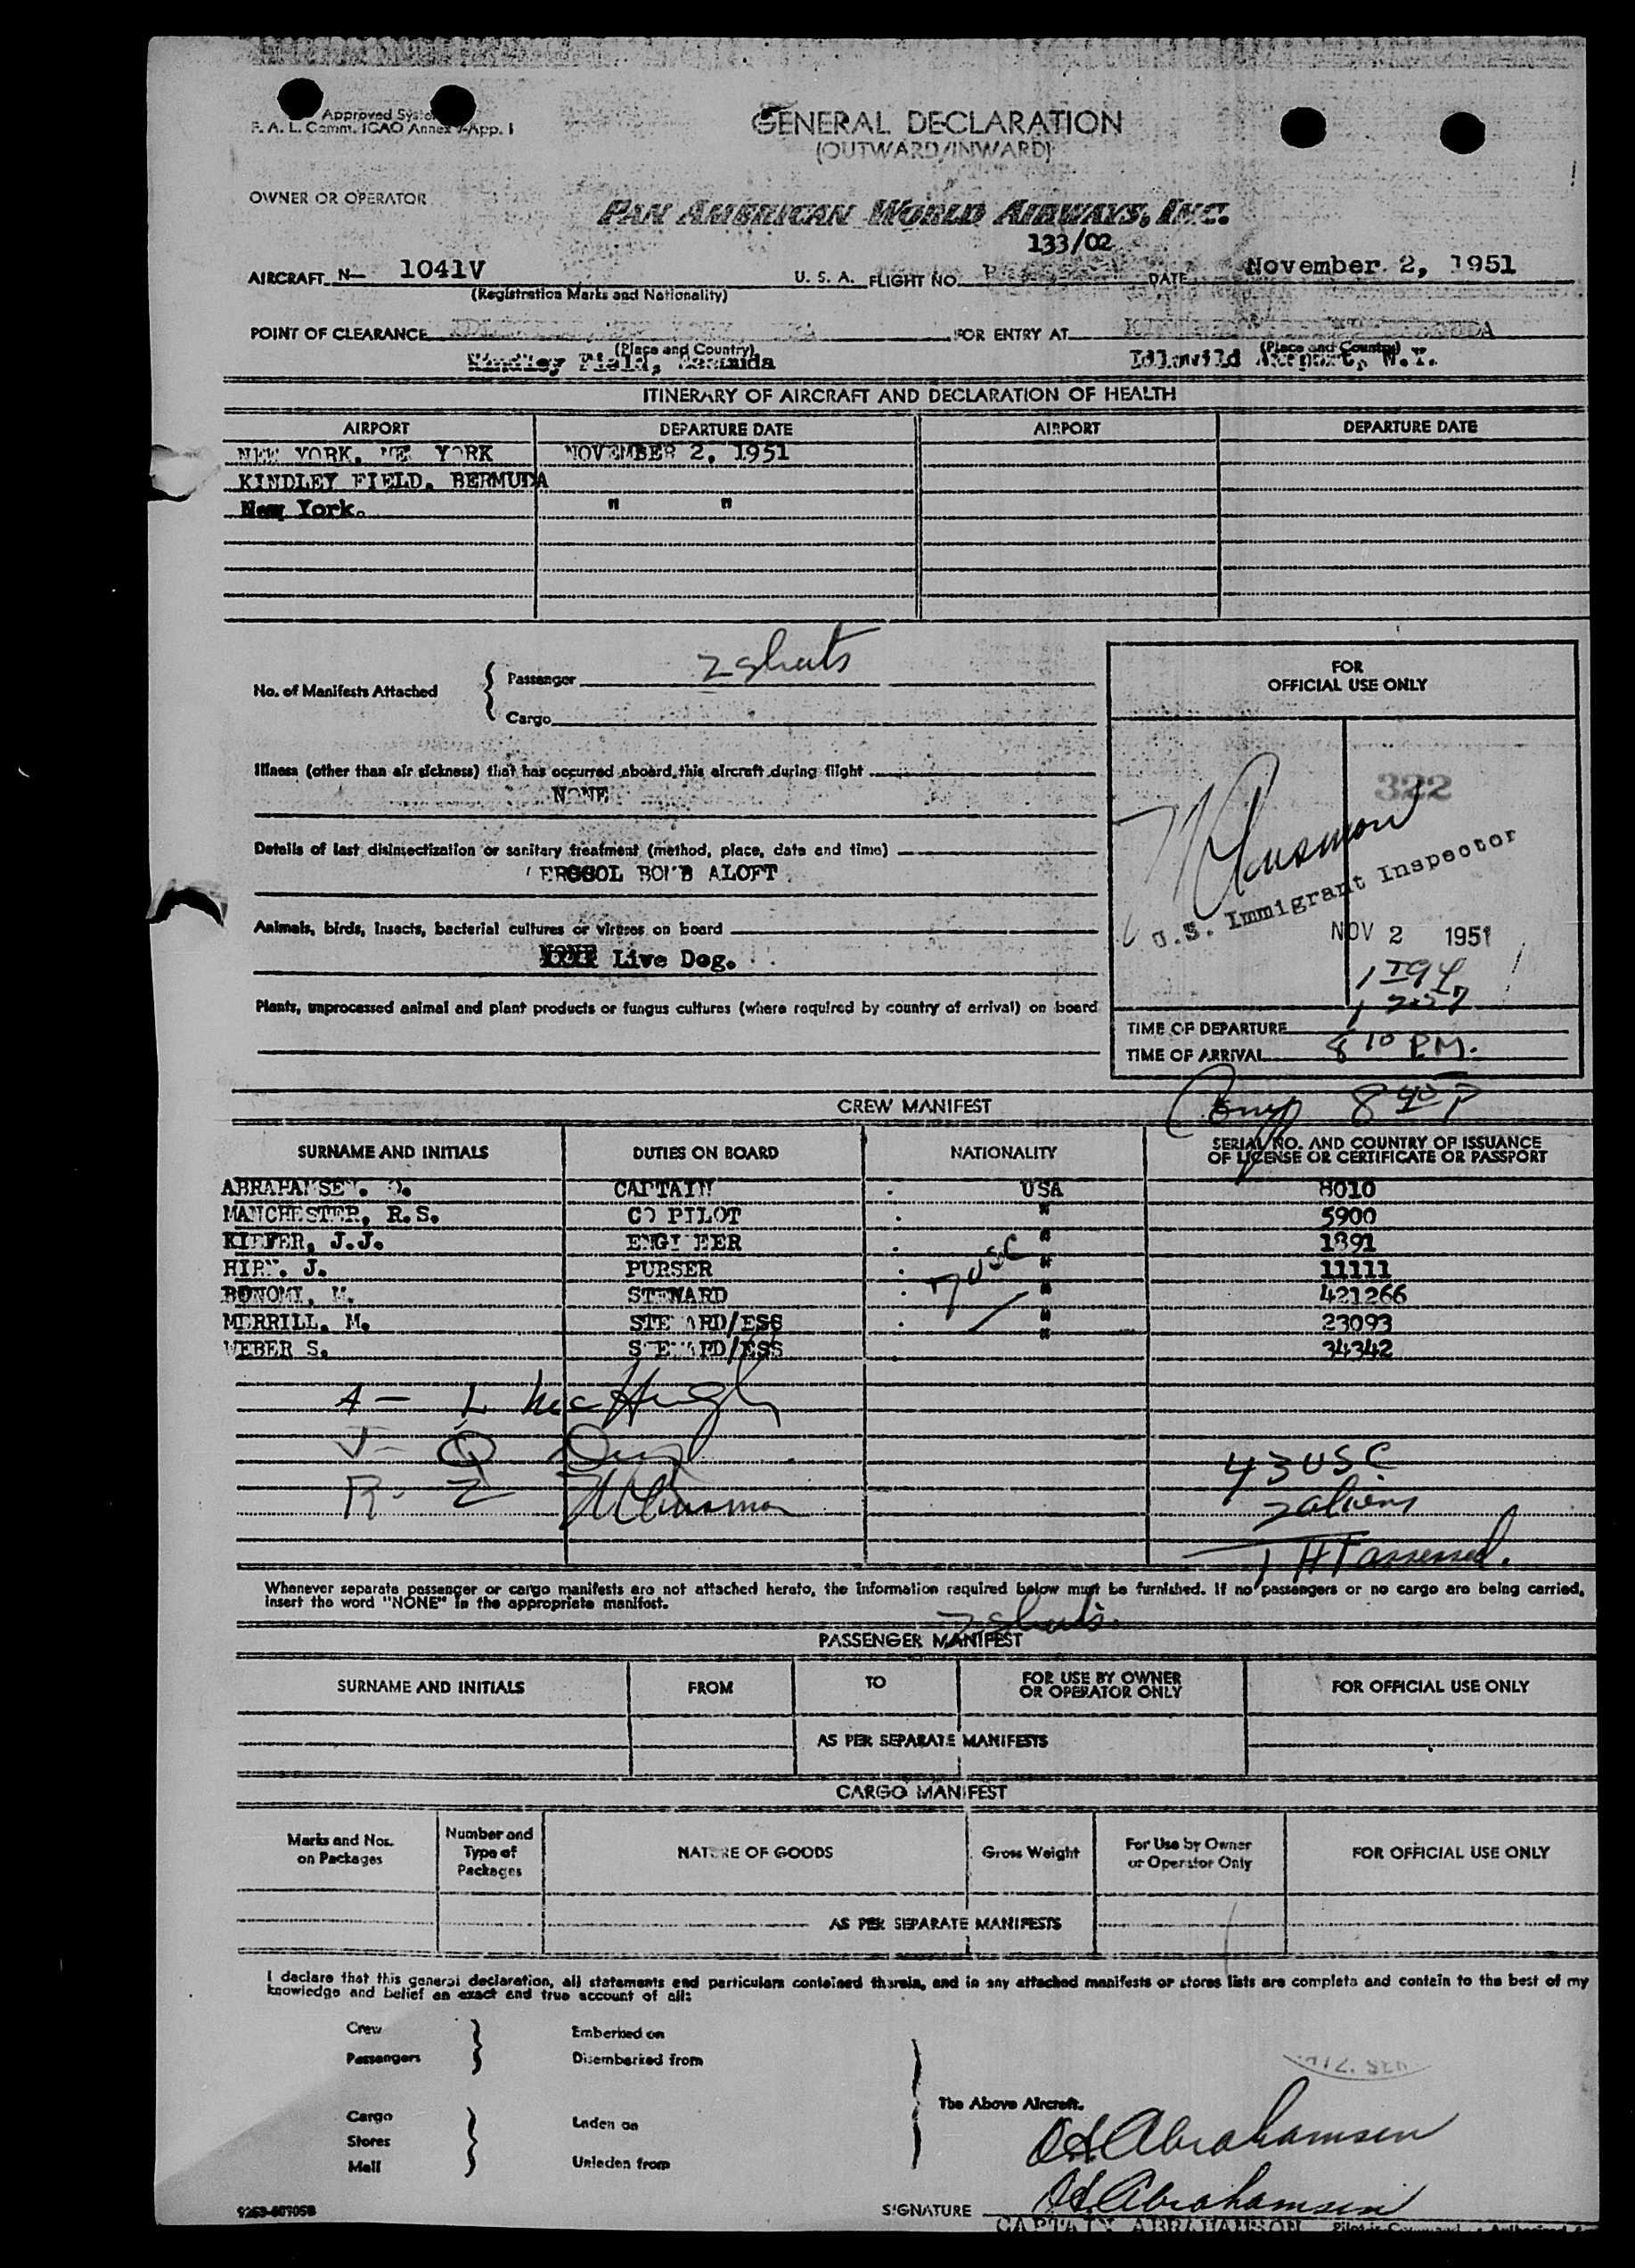 Approved System
F. A. L. Comm. ICAO Annex 9-App. 1
GENERAL DECLARATION
(OUTWARD/INWARD)
OWNER OR OPERATOR
PAN AMERICAN WORLD AIRWAYS, INC.
133/02
AIRCRAFT N— 1041V U. S. A. FLIGHT NO. DATE November 2, 1951
(Registration Marks and Nationality)
POINT OF CLEARANCE FOR ENTRY AT
(Place and Country) (Place and Country)
Kindley Field, Bermuda Idlewild Airport, N.Y.
ITINERARY OF AIRCRAFT AND DECLARATION OF HEALTH
AIRPORT DEPARTURE DATE AIRPORT DEPARTURE DATE
NEW YORK, NEW YORK NOVEMBER 2, 1951
KINDLEY FIELD, BERMUDA
New York. " "
No. of Manifests Attached
Passenger 2 sheets
Cargo
FOR
OFFICIAL USE ONLY
Illness (other than air sickness) that has occurred aboard this aircraft during flight
NONE
322
Details of last disinsectization or sanitary treatment (method, place, date and time)
EROSOL BOMB ALOFT
U.S. Immigrant Inspector
Animals, birds, insects, bacterial cultures or viruses on board
NONE Live Dog.
NOV 2 1951
Plants, unprocessed animal and plant products or fungus cultures (where required by country of arrival) on board
TIME OF DEPARTURE
TIME OF ARRIVAL 8 10 P.M.
CREW MANIFEST
8 40 P
SURNAME AND INITIALS DUTIES ON BOARD NATIONALITY SERIAL NO. AND COUNTRY OF ISSUANCE
OF LICENSE OR CERTIFICATE OR PASSPORT
ABRAHAMSEN, O. CAPTAIN USA 8010
MANCHESTER, R.S. CO PILOT " 5900
KIEFER, J.J. ENGINEER " 1891
HIRN, J. PURSER " 11111
BONOMI, M. STEWARD " 421266
MERRILL, M. STEWARD/ESS " 23093
WEBER S. STEWARD/ESS " 34342
7 USC
A — L McHugh
J- Q
R- Z
43 USC
2 aliens
1 HT assessed.
Whenever separate passenger or cargo manifests are not attached hereto, the information required below must be furnished. If no passengers or no cargo are being carried,
insert the word "NONE" in the appropriate manifest.
2 sheets
PASSENGER MANIFEST
SURNAME AND INITIALS FROM TO FOR USE BY OWNER
OR OPERATOR ONLY FOR OFFICIAL USE ONLY
AS PER SEPARATE MANIFESTS
CARGO MANIFEST
Marks and Nos.
on Packages Number and
Type of
Packages NATURE OF GOODS Gross Weight For Use by Owner
or Operator Only FOR OFFICIAL USE ONLY
AS PER SEPARATE MANIFESTS
I declare that this general declaration, all statements and particulars contained therein, and in any attached manifests or stores lists are complete and contain to the best of my
knowledge and belief an exact and true account of all:
Crew Embarked on
Passengers Disembarked from
The Above Aircraft.
Cargo Laden on
Stores
Mail Unladen from
OH Abrahamsen
SIGNATURE OH Abrahamsen
CAPTAIN ABRAHAMSON